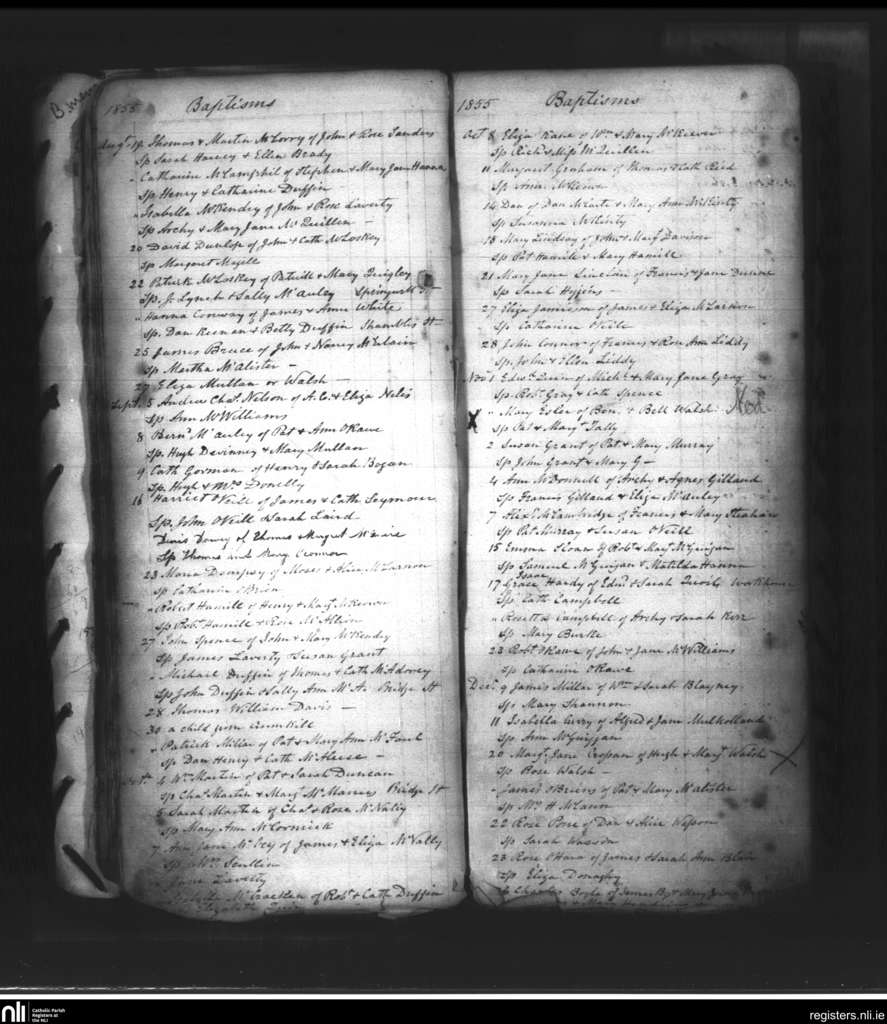 B
1855 Baptisms
Augt 19 Thomas & Martin McLorry of John & Rose Sanders
Sp Sarah Harvey & Ellen Brady
" Catharine McLamphil of Stephen & Mary Jane Hanna
Sp Henry & Catharine Duffin
" Isabella McKendry of John & Rose Laverty
Sp Archy & Mary Jane McQuillen —
20 David Dunlop of John & Cath McLoskey
Sp Margaret Magill
22 Patrick McLoskey of Patrick & Mary Quigley
Sp. J. Lynch & Sally McAuley Springwell St
" Hanna Conway of James & Anne White
Sp. Dan Keenan & Betty Duffin Shambles St
25 James Bruce of John & Nancy McClain
Sp Martha McAlister —
27 Eliza Mullan or Walsh —
Sept. 5 Andrew Chas Nelson of A. C. & Eliza Neles
Sp Ann McWilliams
8 Bernd McAuley of Pat & Ann OKane
Sp. Hugh Devinney & Mary Mullan
9 Cath Gorman of Henry & Sarah Bogan
Sp. Hugh & Mrs Donelly
16 Harriet ONeill of James & Cath Seymour
Sp. John ONeill & Sarah Laird
Denis Dowey of Thomas Margret
Sp Thomas and Mary Connor
23 Maria Dempsey of Moses & Alice McLarnon
Sp Catharine OBrien
" Robert Hamill of Henry & Margt McKeown
Sp Robt Hamill & Rose McAllin
27 John Spence of John & Mary McKendry
Sp James Laverty & Susan Grant
" Michael Duffin of Thomas & Cath McAdorey
Sp John Duffin & Sally Ann McA. Bridge St
28 Thomas William Davis —
30 a child from Crumkill
" Patrick Millar of Pat & Mary Ann McFaul
Sp Dan Henry & Cath McAleese —
Octr 4 Wm Martin of Pat & Sarah Duncan
Sp Chas Martin & Margt McManus Bridge St
5 Sarah Martin of Chas & Rose McNally
Sp Mary Ann McCormick
7 Ann Jane McVey of James & Eliza McVally
Sp Mrs Scullin
Jane Laverty
McCracken of Robt & Cath Duffin
Elizabeth
1855 Baptisms
Oct 8 Eliza Kane of Wm & Mary McKeever
Sp Richd & Miss McQuillen
11 Margaret Graham of Thomas & Cath Reid
Sp Anne McKeown
14 Dan of Dan McCart & Mary Ann McGinity
Sp Susanna McGinity
18 Mary Lindsay of John & Margt Davison
Sp Pat Hamill & Mary Hamill
21 Mary Jane Sinclair of Francis & Jane
Sp Sarah Higgins —
27 Eliza Jamieson of James & Eliza McLarnon
Sp Catharine ONeill
28 John Connor of Francis & Rose Ann Liddy
Sp. John & Ellen Liddy
Novr 1 Edwd Quin of Michl & Mary Jane Gray
Sp Robt Gray & Cate Spence
" Mary Esler of Ben. & Bell Walsh Nod
X Sp Pat & Margt Tally
2 Susan Grant of Pat & Mary Murray
Sp John Grant & Mary G—
4 Ann McDonnell of Archy & Agnes Gilland
Sp Francis Gilland & Eliza McAuley
7 Alexr McCambridge of Francis & Mary
Sp Pat Murray & Susan ONeill
15 Emma Sloan of Robt & Margt McGuigan
Sp Samuel McGuigan & Matilda Hanna
Isaac
17 Grace Hardy of Edwd & Sarah Workhouse
Sp Cath Campbell
" Rosetta Campbell of Archy & Sarah Kerr
Sp Mary Burke
23 Robt OKane of John & Jane McWilliams
Sp Catharine OKane
Decr 9 James Millar of Wm & Sarah Blayney
Sp Mary Shannon
11 Isabella Curry of Alfred & Jane Mulholland
Sp Ann McGuiggan
20 Margt Jane Crossan of Hugh & Margt Walsh X
Sp Rose Walsh —
" James OBrien of Pat & Mary McAlister
Sp Mrs H McCann
22 Rose Pore of Dan & Alice Wesson
Sp Sarah
23 Rose OHara of James & Sarah Ann Blair
Sp Eliza Donaghy
Charles Boyle of James B. & Mary Jane
nli Catholic Parish Registers at the NLI
registers.nli.ie